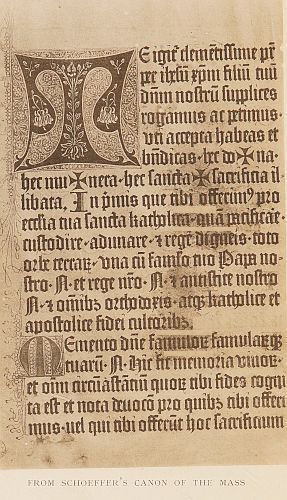 TE igit̃ clemẽtissime pr̃
per ihm̃ xp̃m filiũ tuũ
dñm nostrũ supplices
rogamus ac petimus·
vti accepta habeas et
bñdicas· hec do✠na
hec mu✠nera· hec sancta✠sacrificia il-
libata. In p̃mis que tibi offerim⁹ pro
ecclia tua sancta katholica· quã pacificare·
custodire· adunare· ⁊ regẽ digneis· toto
orbe terrarꝝ· vna cũ famlo tuo Papa no-
stro· N· et rege nr̃o· N· ⁊ antistite nostro
N· ⁊ om̃ibꝫ orthodoxis· atqꝫ katholice et
apostolice fidei cultoribꝫ.
MEmento dñe famulorꝝ famularꝝqꝫ
tuarũ· N· Hic fit memoria viuorꝝ·
et om̃i circũastãtiũ quorꝝ tibi fides cogni
ta est et nota deuoc̃o pro quibꝫ tibi offeri
mus· uel qui tibi offerũt hoc sacrificium
FROM SCHOEFFER'S CANON OF THE MASS